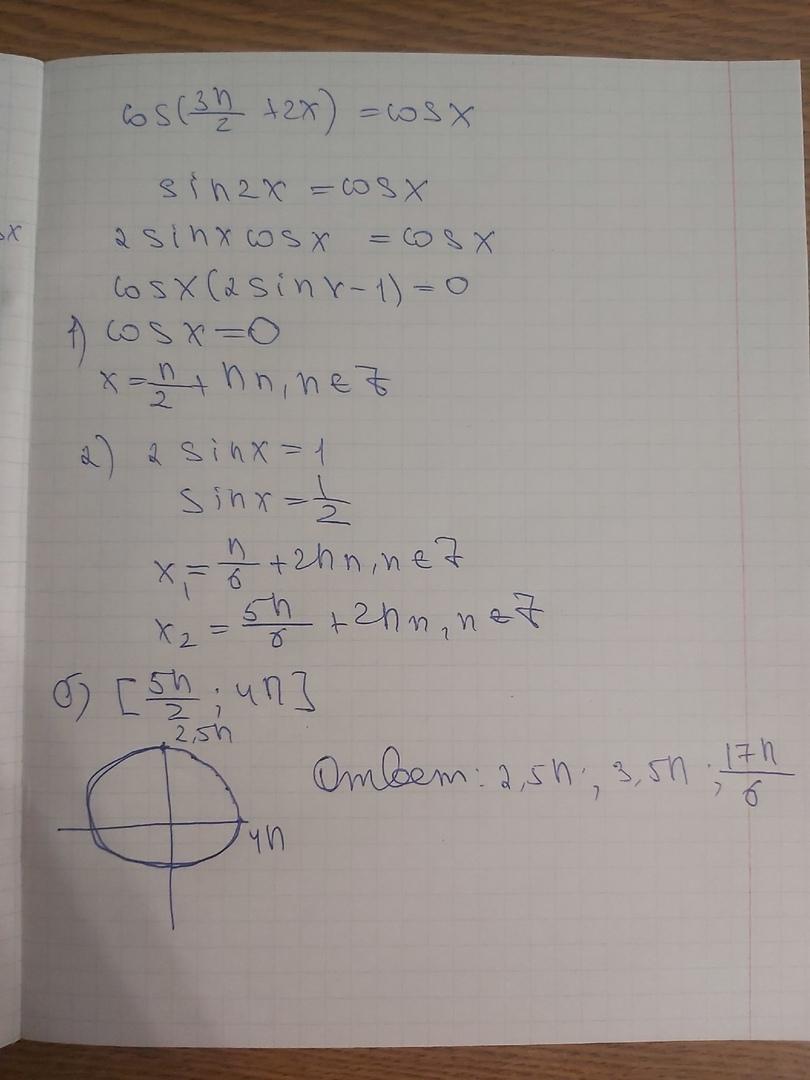 cos(3π/2 + 2x) = cos x
sin2x = cosx
sx
2 sinx cosx = cosx
cosx(2 sinx - 1) = 0
1) cosx = 0
x = π/2 + πn, n ∈ Z
2) 2 sinx = 1
sinx = 1/2
x₁ = π/6 + 2πn, n ∈ Z
x₂ = 5π/6 + 2πn, n ∈ Z
б) [5π/2 ; 4π]
2,5π
Ответ: 2,5π; 3,5π; 17π/6
4π